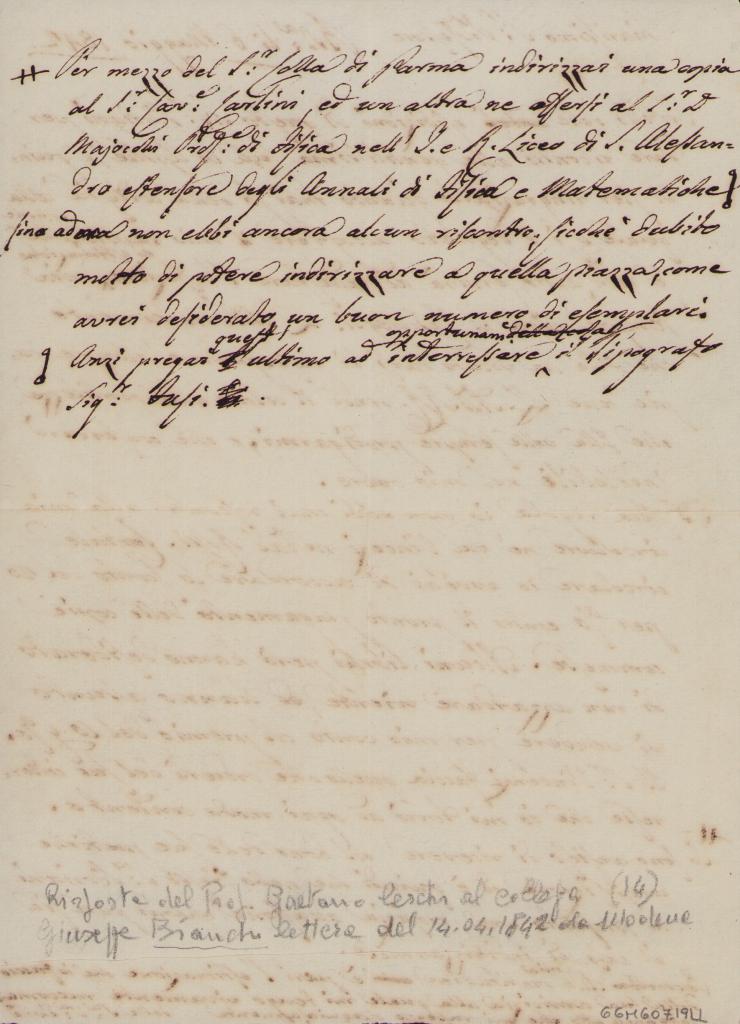 # Per mezzo del S.r Colla di Parma indirizzai una copia
al S.r Cav.e Carlini, ed un altra ne offersi al S.r D
Majocchi Prof.e di Fisica nell' I. e R. Liceo di S. Alessan=
dro estensore degli Annali di Fisica e Matematiche
sino adora non ebbi ancora alcun riscontro; sicchè dubito
molto di potere indirizzare a quella piazza, come
avrei desiderato, un buon numero di esemplari.
quest'
opportunam
Anzi pregai ultimo ad interressare il Tipografo
Sig.r
Risposta del Prof. Gaetano al collega (14)
Giuseppe Bianchi lettera del 14.04.1842 da Modena